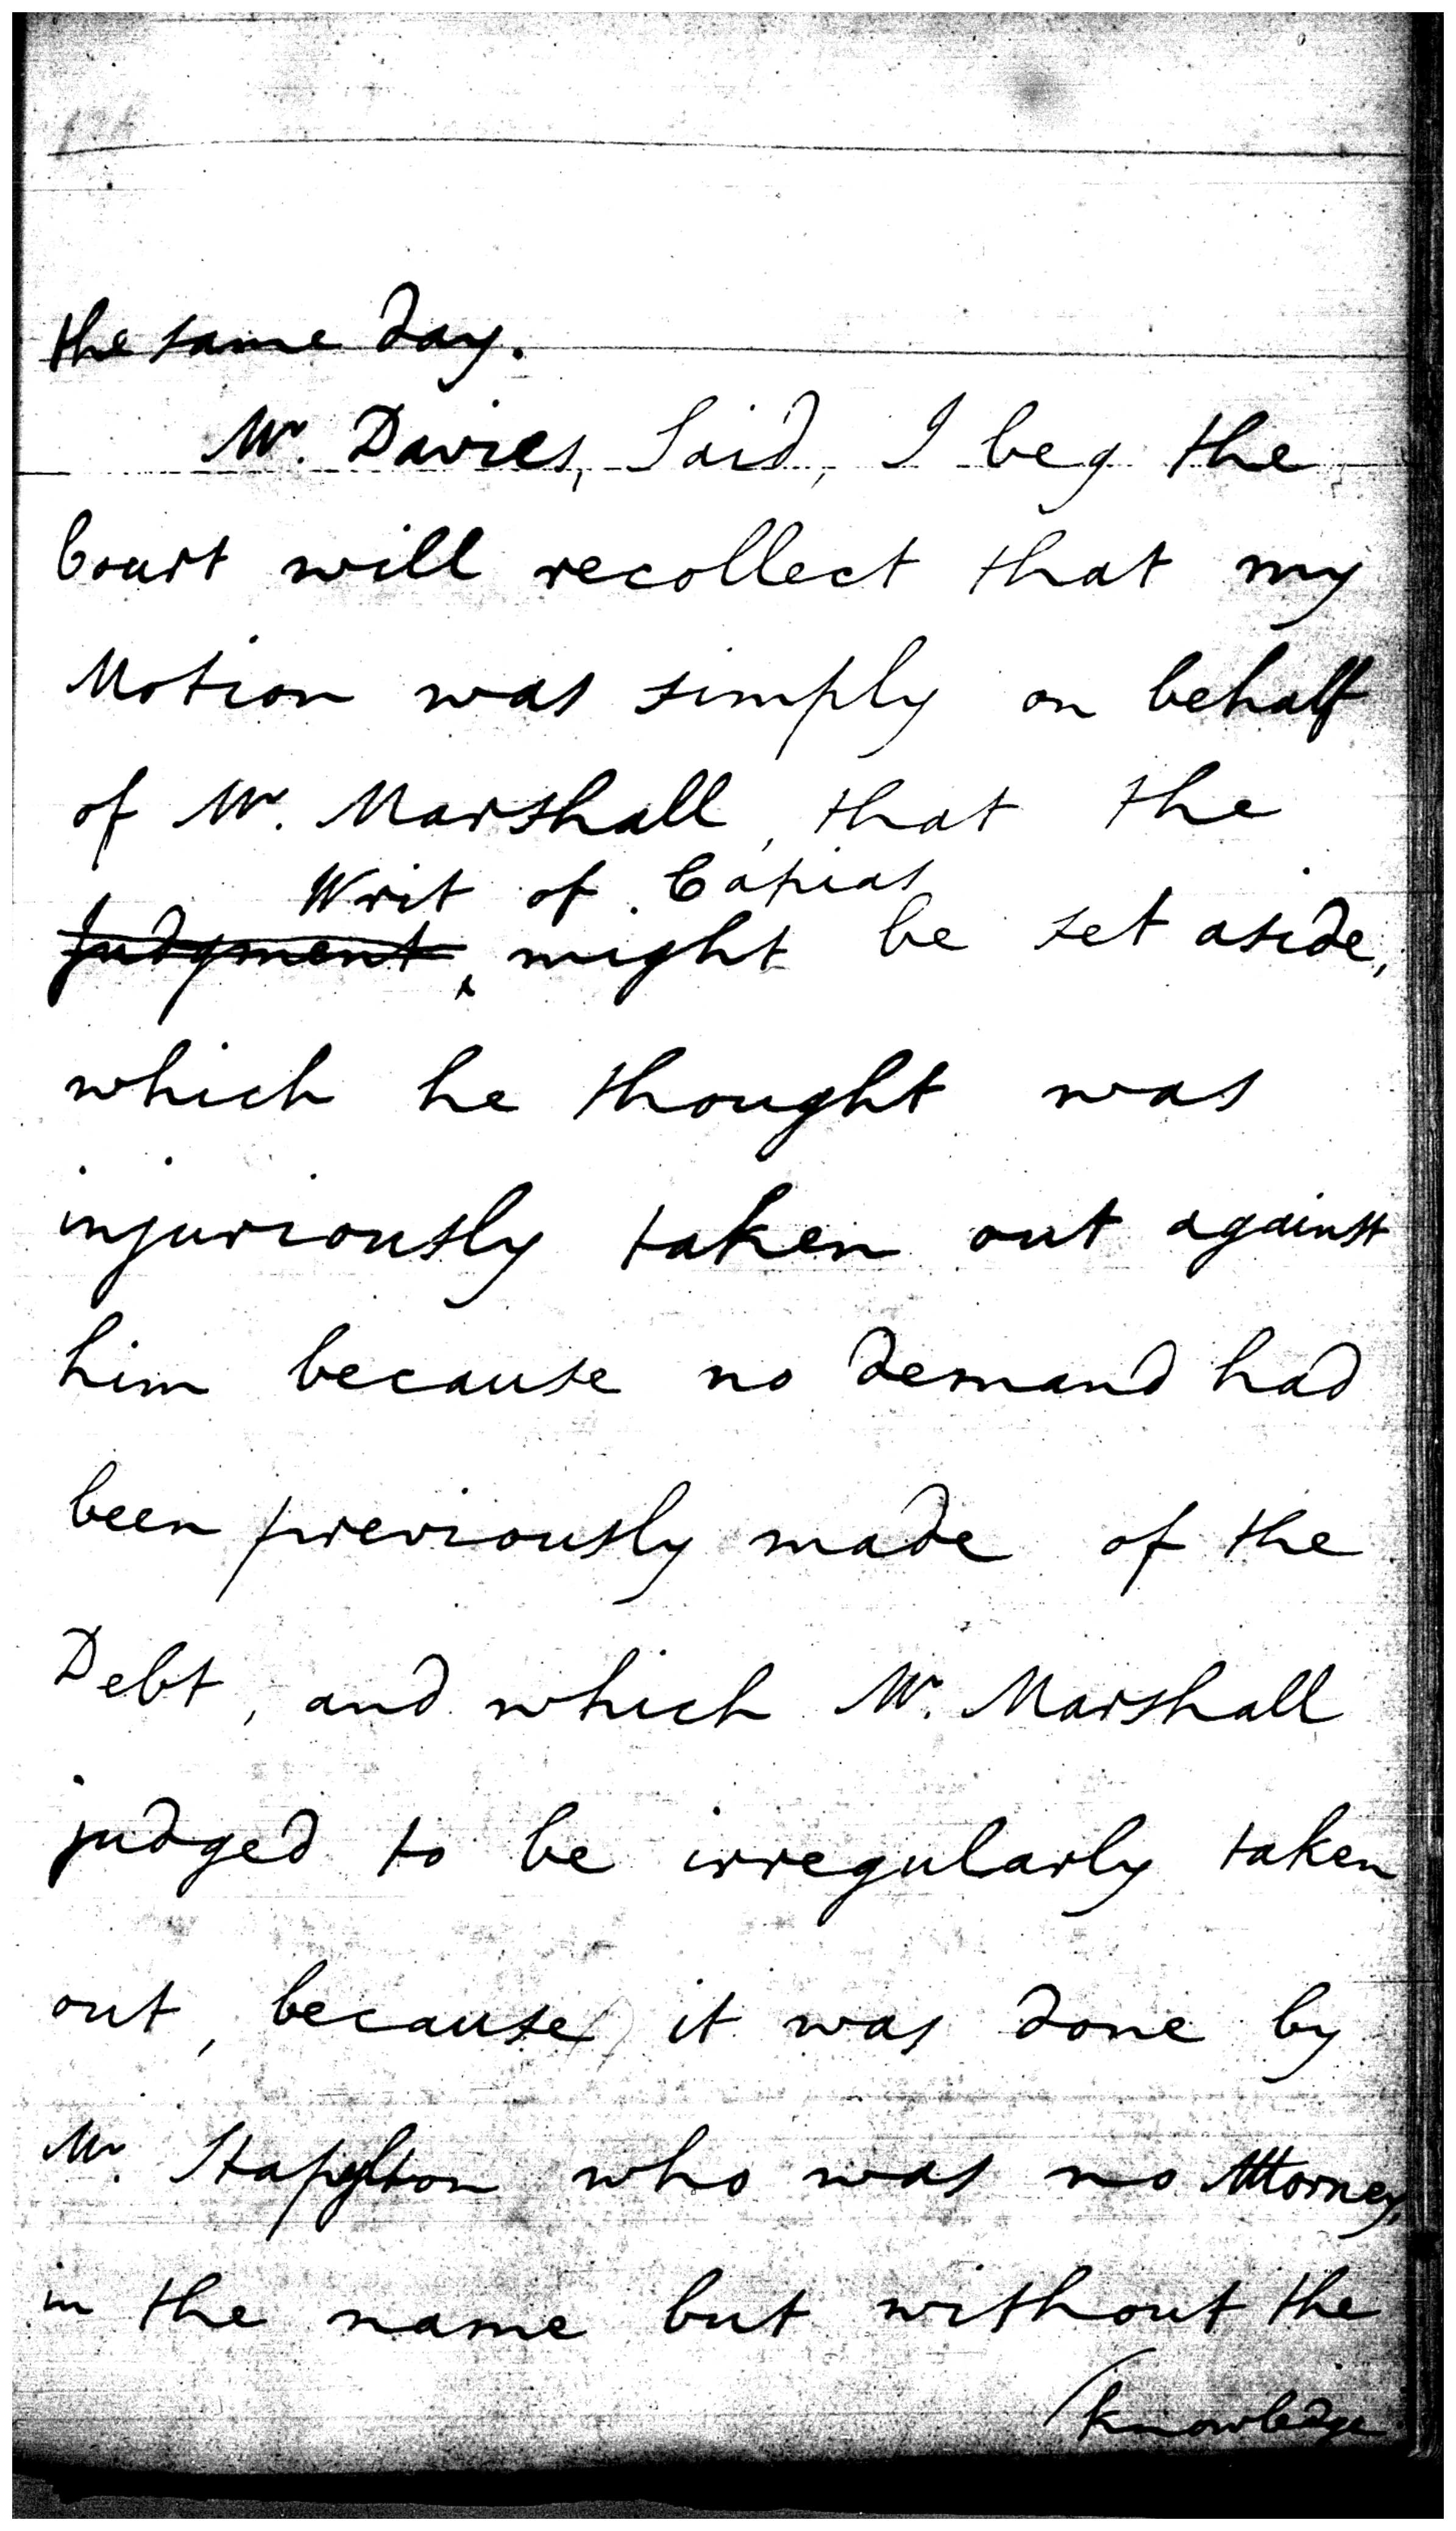 the same day.
Mr. Davies, said, I beg the
Court will recollect that my
Motion was simply on behalf
of Mr. Marshall, that the
Writ of Capias
Judgment, might be set aside,
which he thought was
injuriously taken out against
him because no demand had
been previously made of the
Debt, and which Mr. Marshall
judged to be irregularly taken
out, because it was done by
Mr. Stapylton who was no Attorney,
in the name but without the
(knowledge